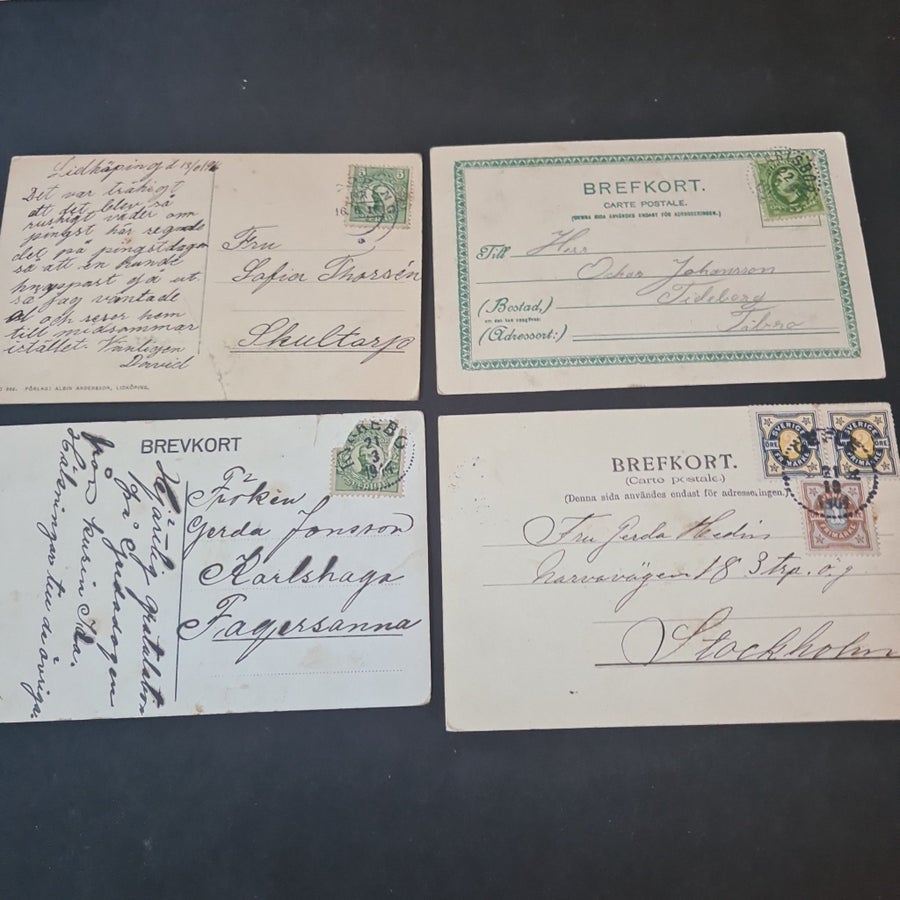 Lidköping d 13/6 1916
Det var tråkigt
att det blev så
ruskigt väder om
pingst har regnade
det på pingstdagen
så att en kunde
knappast gå ut.
så jag väntade
och reser hem
till midsommar
istället. Vänligen
David
FÖRLAG: ALBIN ANDERSSON, LIDKÖPING.
5 5
Fru
Sofia Thorsén
Skultorp
BREFKORT.
CARTE POSTALE.
(DENNA SIDA ANVÄNDES ENDAST FÖR ADRESSERINGEN.)
Till Herr
Oskar Johansson
Tideberg
Taberg
(Bostad,)
(Adressort:)
BREVKORT
ÖREBRO
21
3
Fröken
Gerda Jonsson
Karlshaga
Fagersanna
Hjärtlig gratulation
på Gerdadagen
från kusin Ida.
Hälsningar till de övriga.
BREFKORT.
(Carte postale.)
(Denna sida användes endast för adresseringen.)
SVERIGE SVERIGE
ÖRE
FRIMÄRKE FRIMÄRKE
FRIMÄRKE
Fru Gerda Hedin
Narvavägen 18 3 trp. o. g.
Stockholm